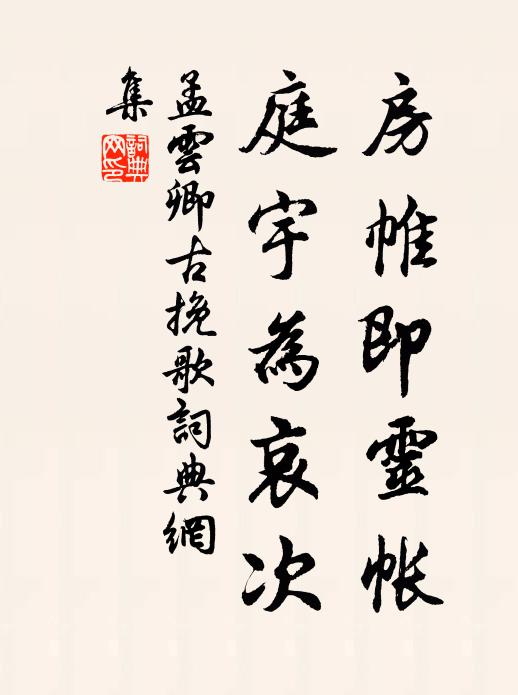 房帷即靈帳
庭宇為哀次
孟雲卿古挽歌詞典網
集
詞典網印